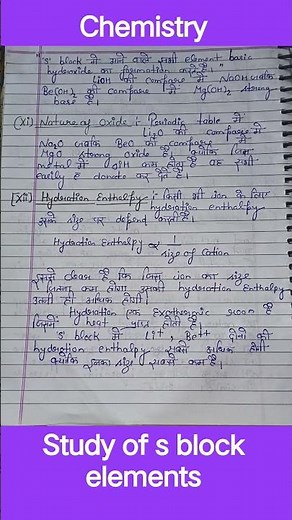 Chemistry
"s' block में आने वाले सभी element basic
hydroxide का formation करते है।"
LiOH की compare में NaOH जबकि
Be(OH)₂ की compare में Mg(OH)₂ strong
base है।
(xi) Nature of Oxide : Periodic table में
Li₂O की compare में
Na₂O जबकि BeO की compare में
MgO strong oxide है। क्योंकि
metal में होता है
easily e⁻ donate कर देते है।
[xii] Hydration Enthalpy : किसी भी ion के लिए
hydration enthalpy
उसके size पर depend करती है।
Hydration Enthalpy ∝ 1/
size of Cation
इससे clear है कि जिस ion का size
जितना कम होगा उसकी hydration Enthalpy
उतनी ही अधिक होगी।
Hydration एक Exothermic है
जिसमें heat होती है।
's' block में Li⁺, Be⁺⁺ दोनों की
hydration enthalpy सबसे अधिक होगी
क्योंकि इनका size सबसे कम है।
Study of s block
elements